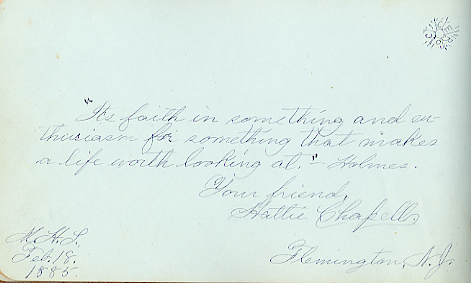 "Its faith in something and en-
thusiasm for something that makes
a life worth looking at" - Holmes.
Your friend,
Hattie Chapell,
Flemington, N.J.
N.H.S.
Feb. 18.
1885.